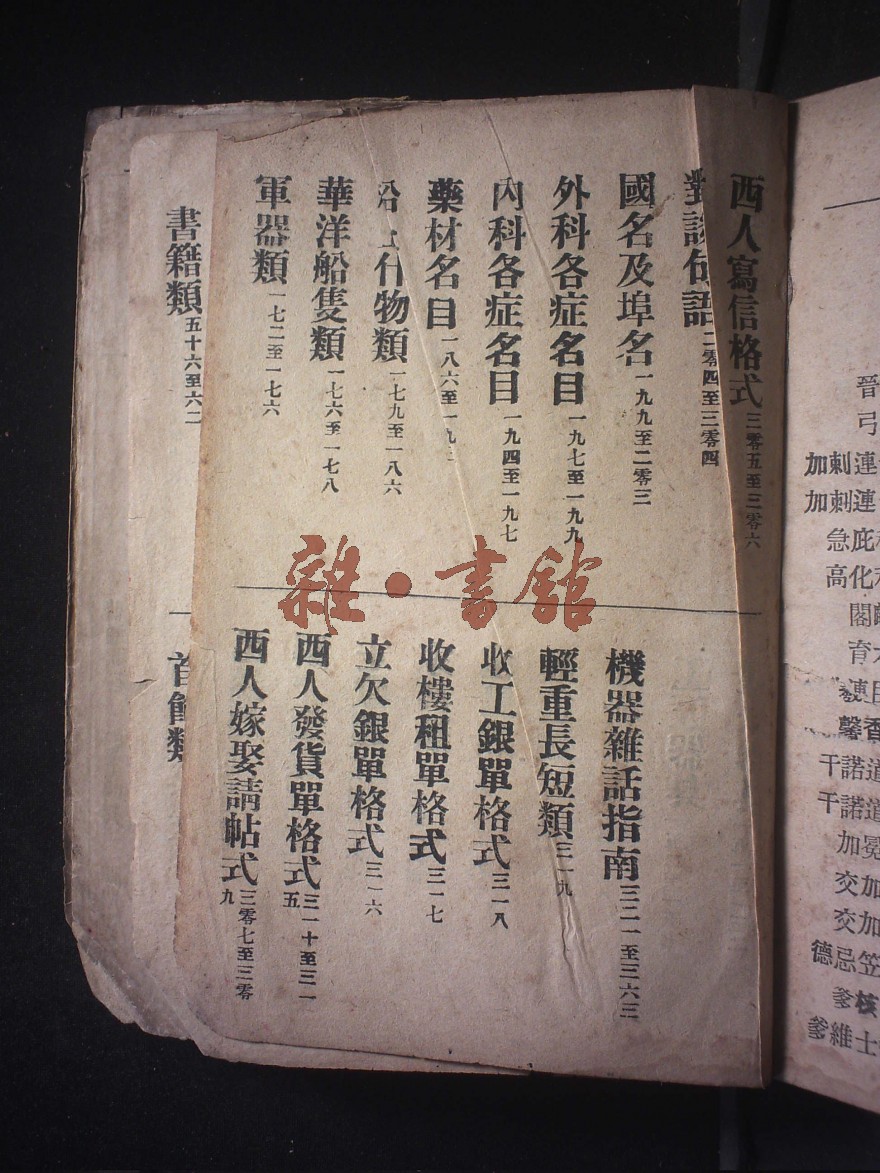 書籍類 五十六至六二
軍器類 一七二至一七六
華洋船隻類 一七六至一七八
什物類 一七九至一八六
藥材名目 一八六至一九
內科各症名目 一九四至一九七
外科各症名目 一九七至一九九
國名及埠名 一九九至二零三
對談句語 二零四至三零四
西人寫信格式 三零五至三零六
首飾類
西人嫁娶請帖式 三零七至三零九
西人發貨單格式 三一十至三一五
立欠銀單格式 三一六
收樓租單格式 三一七
收工銀單格式 三一八
輕重長短類 三一九
機器雜話指南 三二一至三六三
雜·書館
晉
弓
加刺連
加刺連
急庇
高化
閣
育
馨香
干諾道
干諾道
加冕
交加
交加
德忌笠
爹核
爹維士